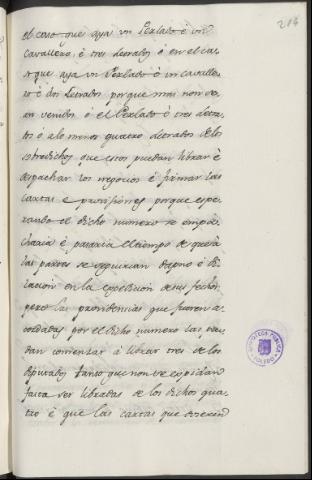 284
el caso que aya un Perlado é un
Cavallero, é tres Letrados ó en el ca-
so que aya un Perlado é un cavalle-
ro é dos Letrados porque mas non se-
an venidos ó el Perlado ó tres Letra-
dos ó alo menos quatro Letrados delos
sobredichos que estos puedan librar é
despachar los negocios é firmar las
cartas é provisiones porque espe-
rando el dicho numero se empa-
charia é pararia el tiempo de que á
las partes se seguirian dapno é di-
lacion en la expedicion de sus fechos
pero las providencias que fueren a-
cordadas por el dicho numero las pue-
dan comenzar á librar tres de los
diputados tanto que non se expidan
fasta ser libradas de los dichos qua-
tro é que las cartas que
BIBLIOTECA PUBLICA
TOLEDO